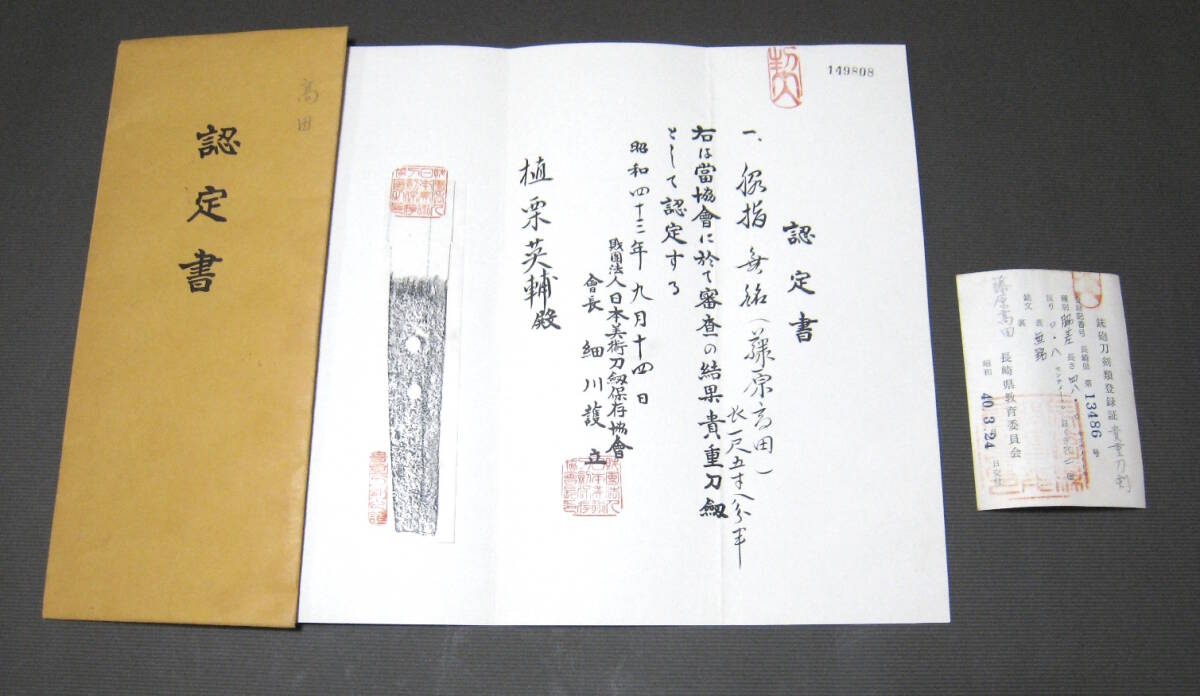 認定書
高田
149808
認定書
一、脇指 無銘(藤原高田)
長一尺五寸八分半
右は當協會に於て審査の結果貴重刀劔
として認定する
昭和四十三年九月十四日
財團法人日本美術刀劔保存協會
會長 細川護立
植栗英輔殿
銃砲刀剣類登録証 貴重刀剣
登録記番号 長崎県 第13486号
種別 脇差 長さ
反り センチメートル
銘文 表 無銘
裏
昭和40.3.24
長崎県教育委員会
藤原高田